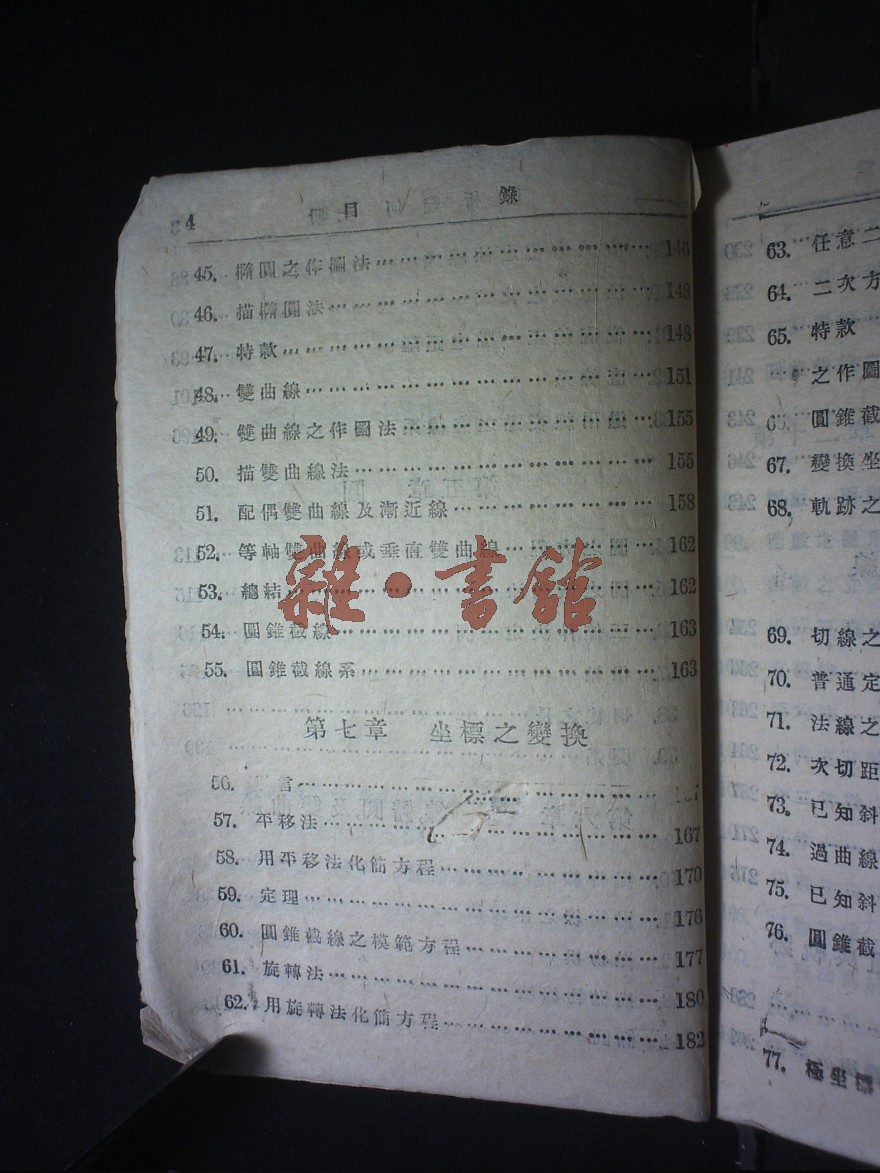 4 目錄
45. 橢圓之作圖法………………………………146
46. 描橢圓法………………………………148
47. 特款………………………………148
48. 雙曲線………………………………151
49. 雙曲線之作圖法………………………………155
50. 描雙曲線法………………………………155
51. 配偶雙曲線及漸近線………………………………158
52. 等軸雙曲線或垂直雙曲線………………162
53. 總結………………………………162
54. 圓錐截線………………………………163
55. 圓錐截線系………………………………163
雜·書館
第七章 坐標之變換
56. 言………………………………
57. 平移法………………………………167
58. 用平移法化簡方程………………………………170
59. 定理………………………………176
60. 圓錐截線之模範方程………………………………177
61. 旋轉法………………………………180
62. 用旋轉法化簡方程………………………………182
63. 任意二
64. 二次方
65. 特款
之作圖
66. 圓錐截
67. 變換坐
68. 軌跡之
69. 切線之
70. 普通定
71. 法線之
72. 次切距
73. 已知斜
74. 過曲線
75. 已知斜
76. 圓錐截
77. 極坐標